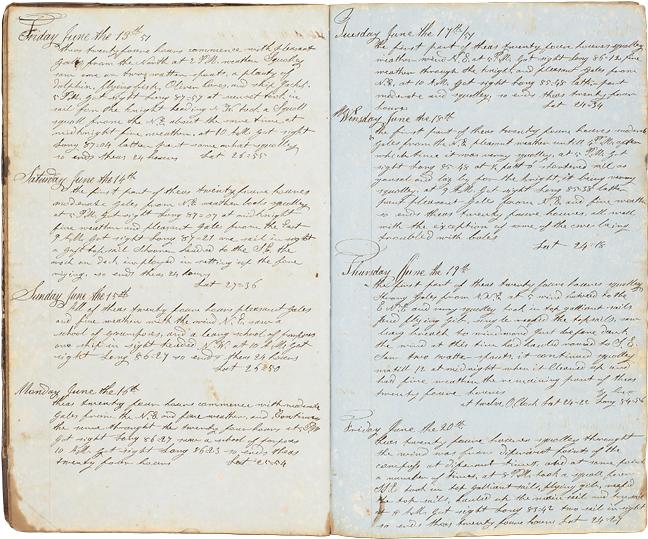 Friday June the 13th /51
theas twenty foure houers commence with pleasant
Gales from the North at 2 P.M. weather Squaley
saw one or two watter spouts, a plenty of
dolphin, flyingfish,
5 P.M. Got sight Long 87-57 at sunset took in
sail for the knight heading N.W. had a Squall
squall from the N.E. about the same time at
midknight fine weather. at 10 A.M. Got sight
Long 87.04 latter part some what squaley
so ends theas 24 houers Lat 28-55
Saturday June the 14th
the first part of theas twenty foure houers
moderate Gales from N.E. weather looks squaley
at 5 P.M. Got sight Long 87-07 at midknight
fine weather and pleasant Gale from the East
9 A.M. Got sight Long 87-21 one sail in sight
a Gaft topsail Schoner headed to the
wish on deck imployed in setting up the fore
riging. so ends theas 24 houers
Lat 27-36
Sunday June the 15th
All of theas twenty foure houers pleasant Gales
and fine weather with the wind N.E. saw a
school of Grampuses, and a large school of porpoises
one ship in sight headed N.W. at 10 A.M. Got
sight Long 86-27 so ends theas 24 houers
Lat 26-50
Munday June the 16th
theas twenty foure houers commence with moderate
Gales from the N.E. and fine weather, and Continues
the same throught the twenty foure houers at 5 PM
Got sight Long 86-23 saw a school of porpoises
10 A.M. Got sight Long 86-23 so ends theas
twenty foure houers Lat 25-54
Tuesday June the 17th /51
the first part of theas twenty foure houers squaley
weather wind N.E. at 5 P.M. Got sight Long 86-12 fine
weather through the knight and pleasant Gales from
N.E. at 10 A.M. Got sight Long 85-48 latter part
moderate and squaley, so ends theas twenty foure
houers Lat 24-34
Winsday June the 18th
the first part of theas twenty foure houers moderate
Gales from the N.E. pleasant weather until 4 P.M. after
which time it was verry squaley, at 5 P.M. Got
sight Long 85-48 at 6 P.M. shortend sail as
yousual and lay by for the knight, it being verry
squaley. at 9 A.M. Got sight Long 85-38 latter
part pleasant Gales from N.E. and fine weather
so ends theas twenty foure houers, all well
with the exception of some of the crew being
troubled with boils
Lat 24-18
Thursday June the 19th
the first part of theas twenty foure houers squaley
strong Gales from N.N.E. at 5 wind hawled to the
E.N.E. and verry squaley took in top gallant sails
furld flying gibs, double reefed the topsails, saw
Land to windward Just before dark,
the wind at this time had hauled round to S.E.
Saw two watter spouts. it continued squaley
untill 12 at midnight when it Cleared up and
had fine weather the remaining part of theas
twenty foure houers
at twelve O,Clock Lat 24-22 Long 84-56
Friday June the 20th
theas twenty foure houers squaley throught
the wind from diferant points of the
compass at diferant times, and at same time
a number of times, at 4 P.M. took a squall from
took in top galliant sails, flying gibs, reefed
the top sails, hauled up the main sail and
at 8 A.M. Got sight Long 83-42 two sail in sight
so ends theas twenty foure houers Lat 24-27